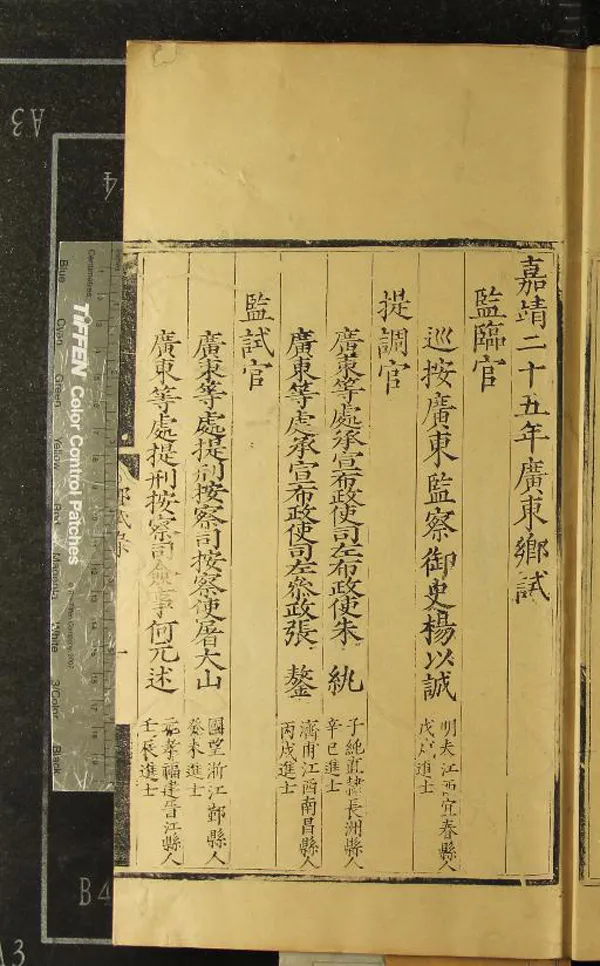 嘉靖二十五年廣東鄉試
監臨官
巡按廣東監察御史楊以誠
明夫江西宜春縣人
戊戌進士
提調官
廣東等處承宣布政使司左布政使朱 紈
子純直隸長洲縣人
辛巳進士
廣東等處承宣布政使司左叅政張 鏊
濟甫江西南昌縣人
丙戌進士
監試官
廣東等處提刑按察司按察使屠大山
國望浙江鄞縣人
癸未進士
廣東等處提刑按察司僉事何元述
元孝福建晉江縣人
壬辰進士
鄉試錄
一
TIFFEN Color Control Patches
Centimetres
Blue
Cyan
Green
Yellow
Red
Magenta
White
3/Color
Black
A3
4
B4
A3